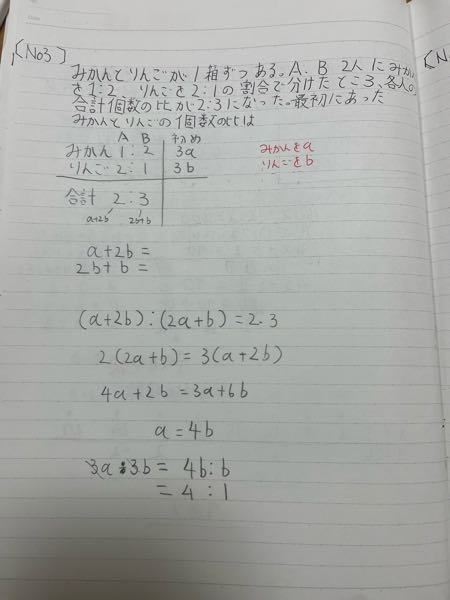 [No3]
みかんとりんごが1箱ずつある。A、B 2人にみかん
を1:2、りんごを2:1の割合で分けたところ、各人の
合計個数の比が2:3になった。最初にあった
みかんとりんごの個数の比は
A B 初め
みかん 1:2 3a
りんご 2:1 3b
合計 2:3
a+2b 2b+b
みかんをa
りんごをb
a+2b=
2b+b=
(a+2b):(2a+b)=2.3
2(2a+b)=3(a+2b)
4a+2b=3a+6b
a=4b
3a:3b=4b:b
=4:1